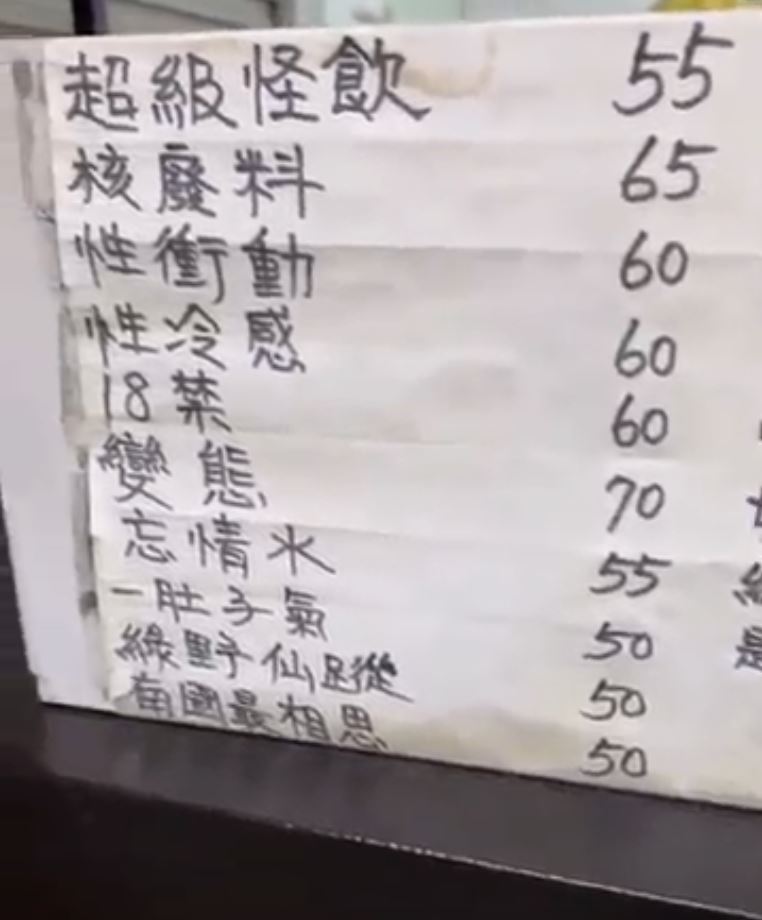 超級怪飲 55
核廢料 65
性衝動 60
性冷感 60
18禁 60
變態 70
忘情水 55
一肚子氣 50
綠野仙蹤 50
南國最相思 50